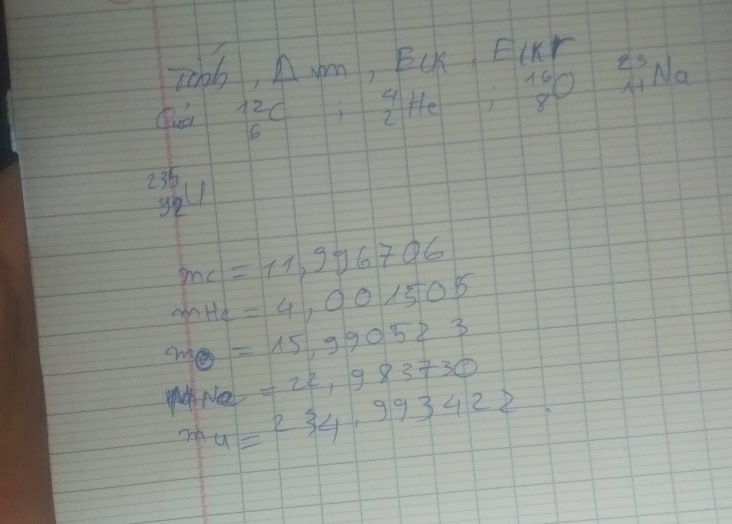 Tính, Δm, Elk, Elkr
Của ¹²₆C ; ⁴₂He ; ¹⁶₈O ²³₁₁Na
²³⁵₉₂U
mc = 11,996706
mHe = 4,001505
mO = 15,990523
mNa = 22,983730
mu = 234,993422.